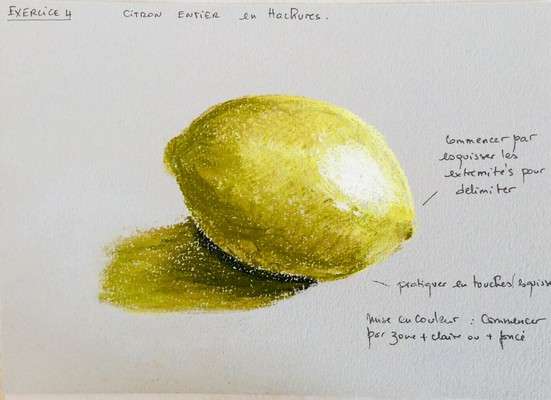 EXERCICE 4 CITRON ENTIER en Hachures.
Commencer par
esquisser les
extremités pour
delimiter
pratiquer en touches/esquisse
mise en couleur : Commencer
par zone + claire ou + foncé